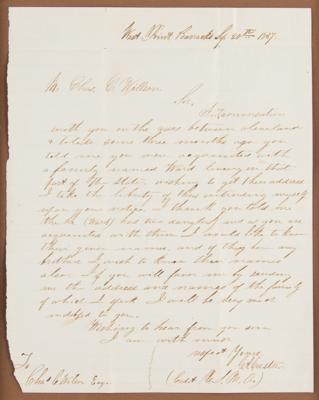 West Point Barracks Sp. 20th 1857.
Mr. Chas. C. Willson
Sir,
A conversation
with you in the cars between cleveland
& toledo some three months ago you
told me you were acquainted with
a family named Ward living in that
part of the State, wishing to get their address
I take the liberty of thus intruding myself
upon your notice. I think you told me
the Mr. (Ward) had two daughters and as you are
acquainted with them I would like to know
their given names, and if they have any
brothers I wish to know their names
also. If you will favor me by sending
me the address and names of the family
of which I speak I will be very much
indebted to you.
Wishing to hear from you soon
I am with much
respect Yours,
To
Chas C. Willson Esq.
(Cadet U.S.M.A.)